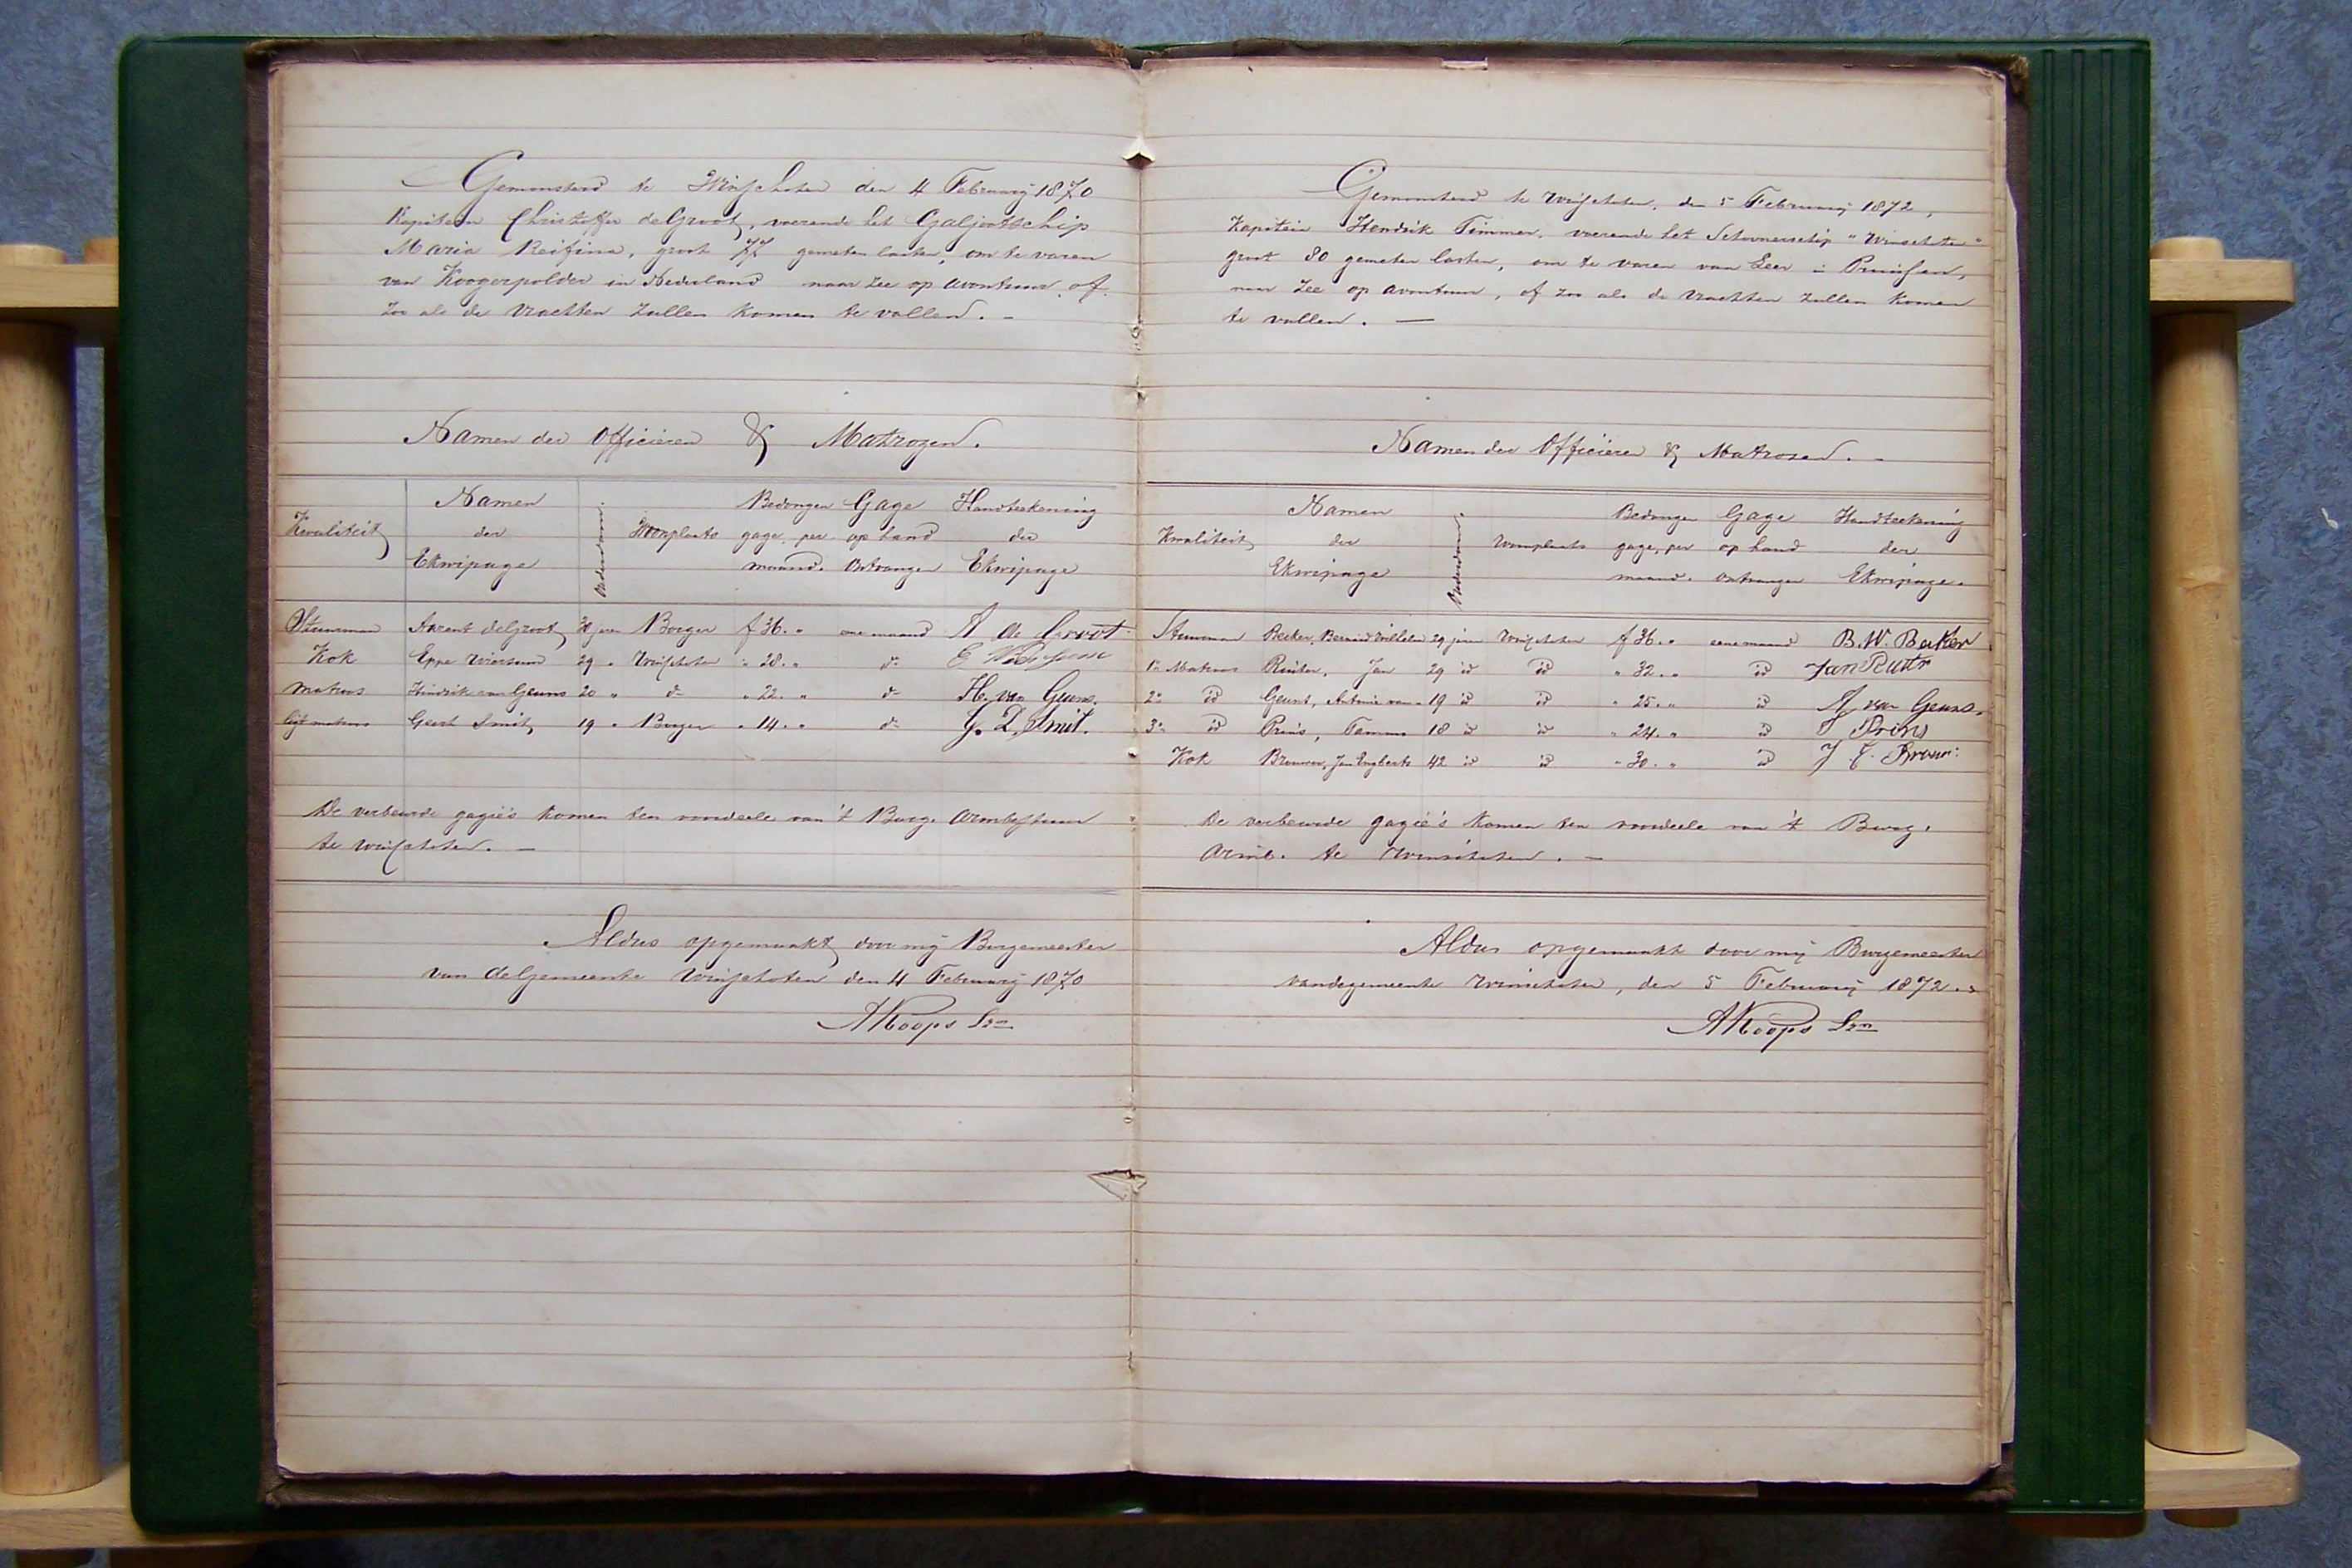 Gemonsterd te Winschoten den 4 February 1870
Kapitein Christoffer de Groot, voerende het Galjootschip
Maria Reifina, groot 77 gemeten lasten, om te varen
van Koogerpolder in Nederland naar zee op avontuur of
zoo als de vrachten zullen komen te vallen. –
Namen der Officieren & Matrozen.
Kwaliteit Namen der Ekwipage Ouderdom. Woonplaats Bedongen gage per maand. Gage op hand ontvangen Handteekening der Ekwipage
Stuurman Aarent de Groot 30 jaren Borger f 36. „ eene maand A de Groot
Kok Eppe Wiersum 29 „ Winschoten „ 28. „ do E
Matroos Hindrik van Geuns 20 „ do „ 22. „ do H. van Geuns.
ligtmatroos Geert Smit 19 „ Borger „ 14. „ do G. D. Smit.
De verbeurde gagie's komen ten voordeele van 't Burg. Armbestuur
te Winschoten. –
Aldus opgemaakt door mij Burgemeester
van de Gemeente Winschoten den 4 February 1870
AKoops Szn
Gemonsterd te Winschoten, den 5 February 1872,
Kapitein Hendrik Timmer, voerende het Schoonerschip "Winschoten"
groot 80 gemeten lasten, om te varen van Leer in Pruissen,
naar zee op avontuur, of zoo als de vrachten zullen komen
te vallen. —
Namen der Officieren & Matrosen. –
Kwaliteit Namen der Ekwipage Ouderdom. Woonplaats Bedongen gage, per maand. Gage op hand ontvangen Handteekening der Ekwipage.
Stuurman Becker, Berend Willem 29 jaren Winschoten f 36. „ eene maand B. W. Becker
1e Matroos Ruiter, Jan 29 id id „ 32. „ id Jan Ruiter
2e id Geuns, Antonie van 19 id id „ 25. „ id A van Geuns.
3e id Prins, Temmo 18 id id „ 24. „ id T Prins
Kok Brouwer, Jan Engberts 42 id id „ 30. „ id J E Brouwer
De verbeurde gagie's komen ten voordeele van 't Burg.
Armb. te Winschoten. –
Aldus opgemaakt door mij Burgemeester
van de gemeente Winschoten, den 5 February 1872. –
AKoops Szn